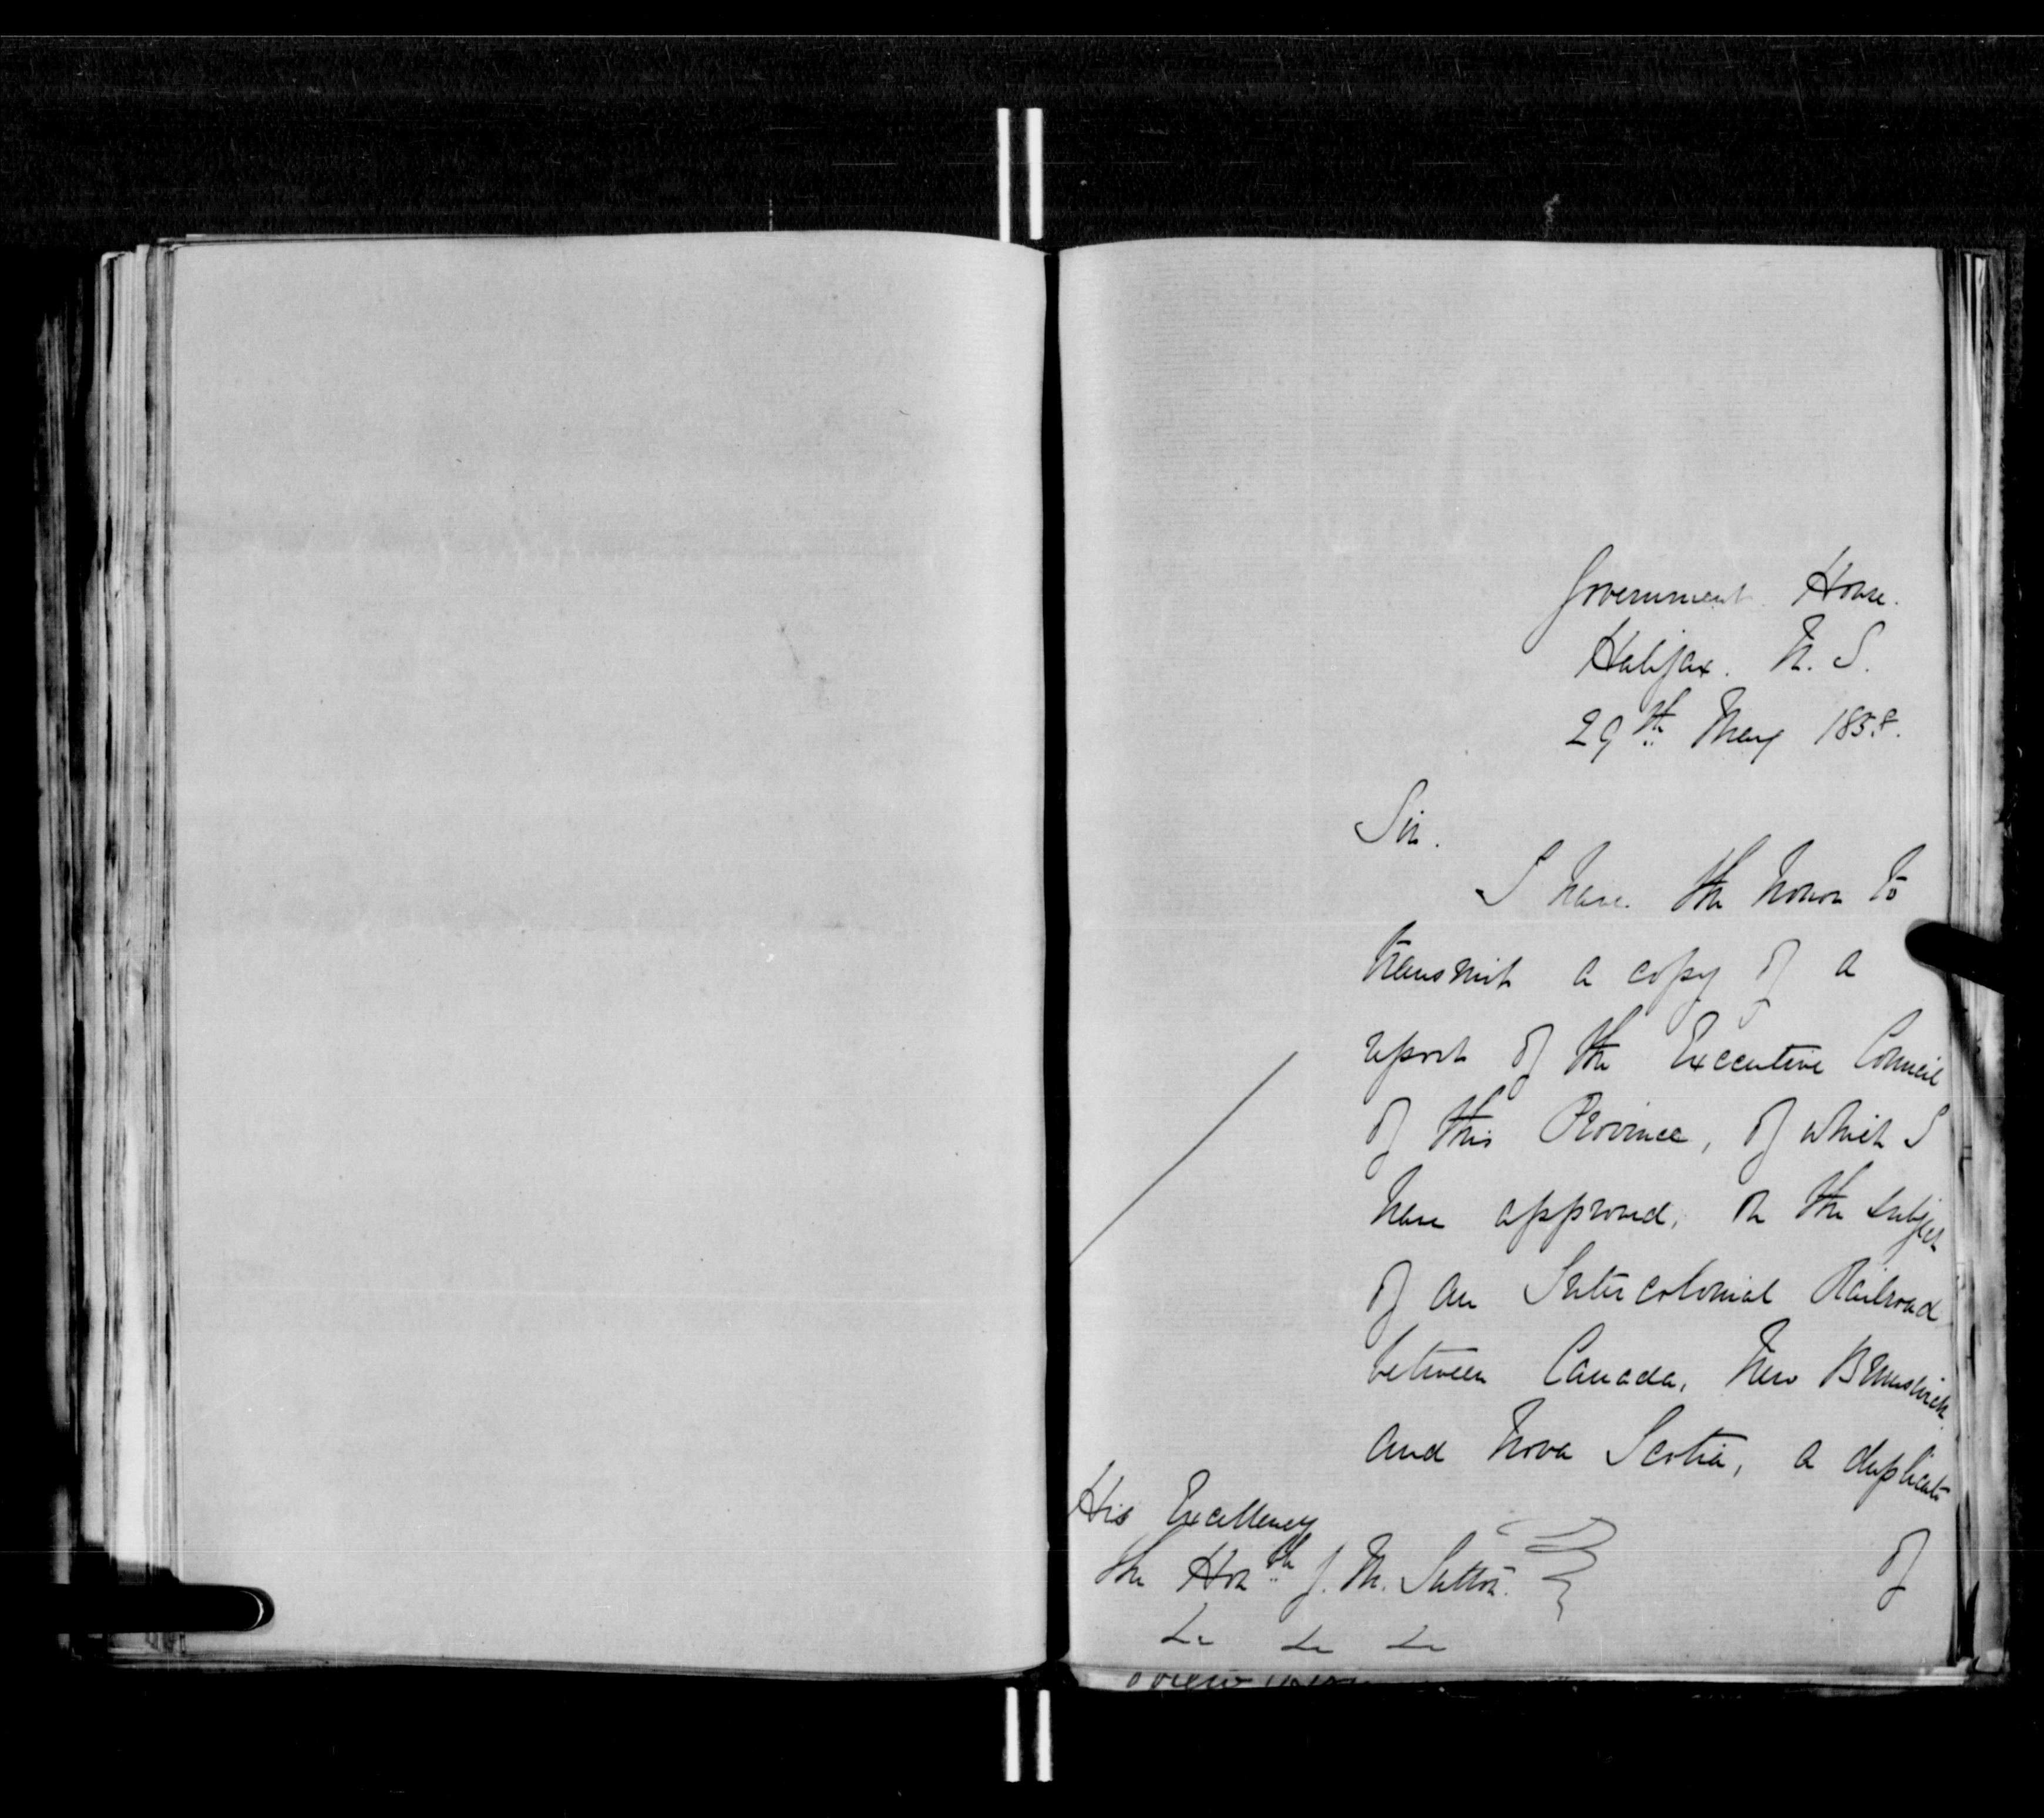 Government House.
Halifax. N. S.
29th May 1858.
Sir.
I have the honor to
transmit a copy of a
report of the Executive Council
of this Province, of which I
have approved, on the subject
of an Intercolonial Railroad
between Canada, New Brunswick
and Nova Scotia, a duplicate
of
His Excellency
The Honble J. M. Sutton.
&c &c &c